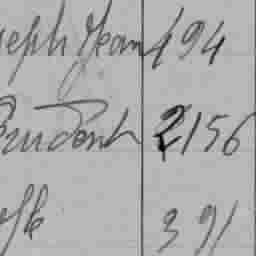 seph Jean 494
Prudent 2156
391